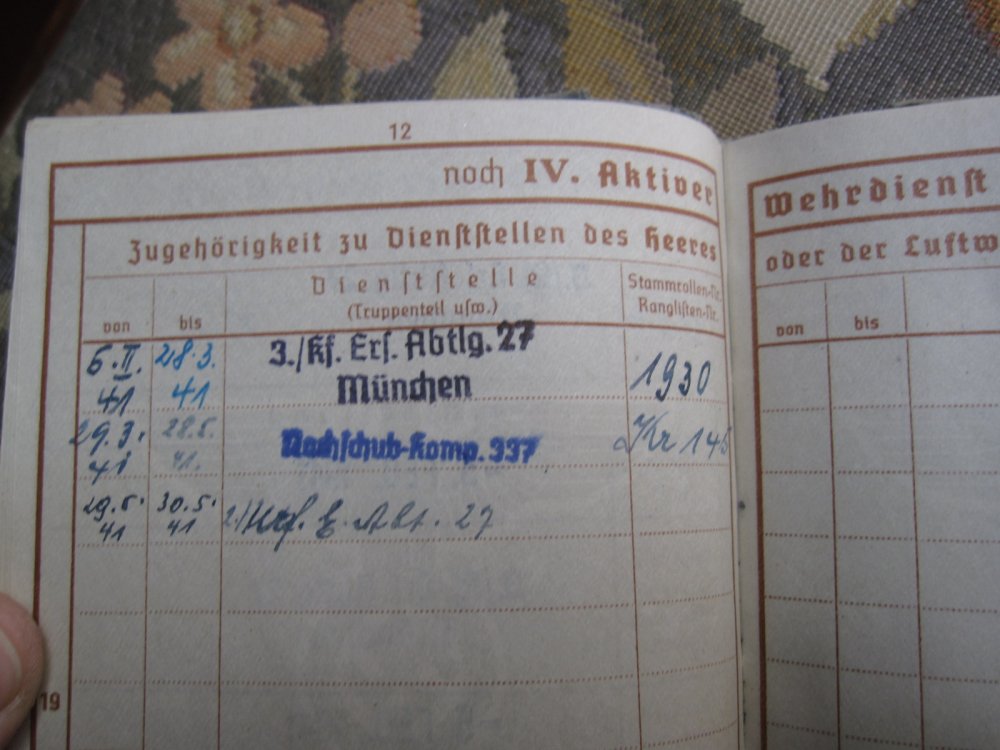 12
noch IV. Aktiver
Wehrdienst
Zugehörigkeit zu Dienststellen des Heeres
oder der Luftw
Dienststelle
(Truppenteil usw.)
Stammrollen-Nr.
Ranglisten-Nr.
von bis
von bis
6.II. 41 28.3. 41
3./Kf. Ers. Abtlg. 27
München
1930
29.3. 41 28.5. 41.
Nachschub-Komp. 337
Kr 145
29.5. 41 30.5. 41
E. Abt. 27
19